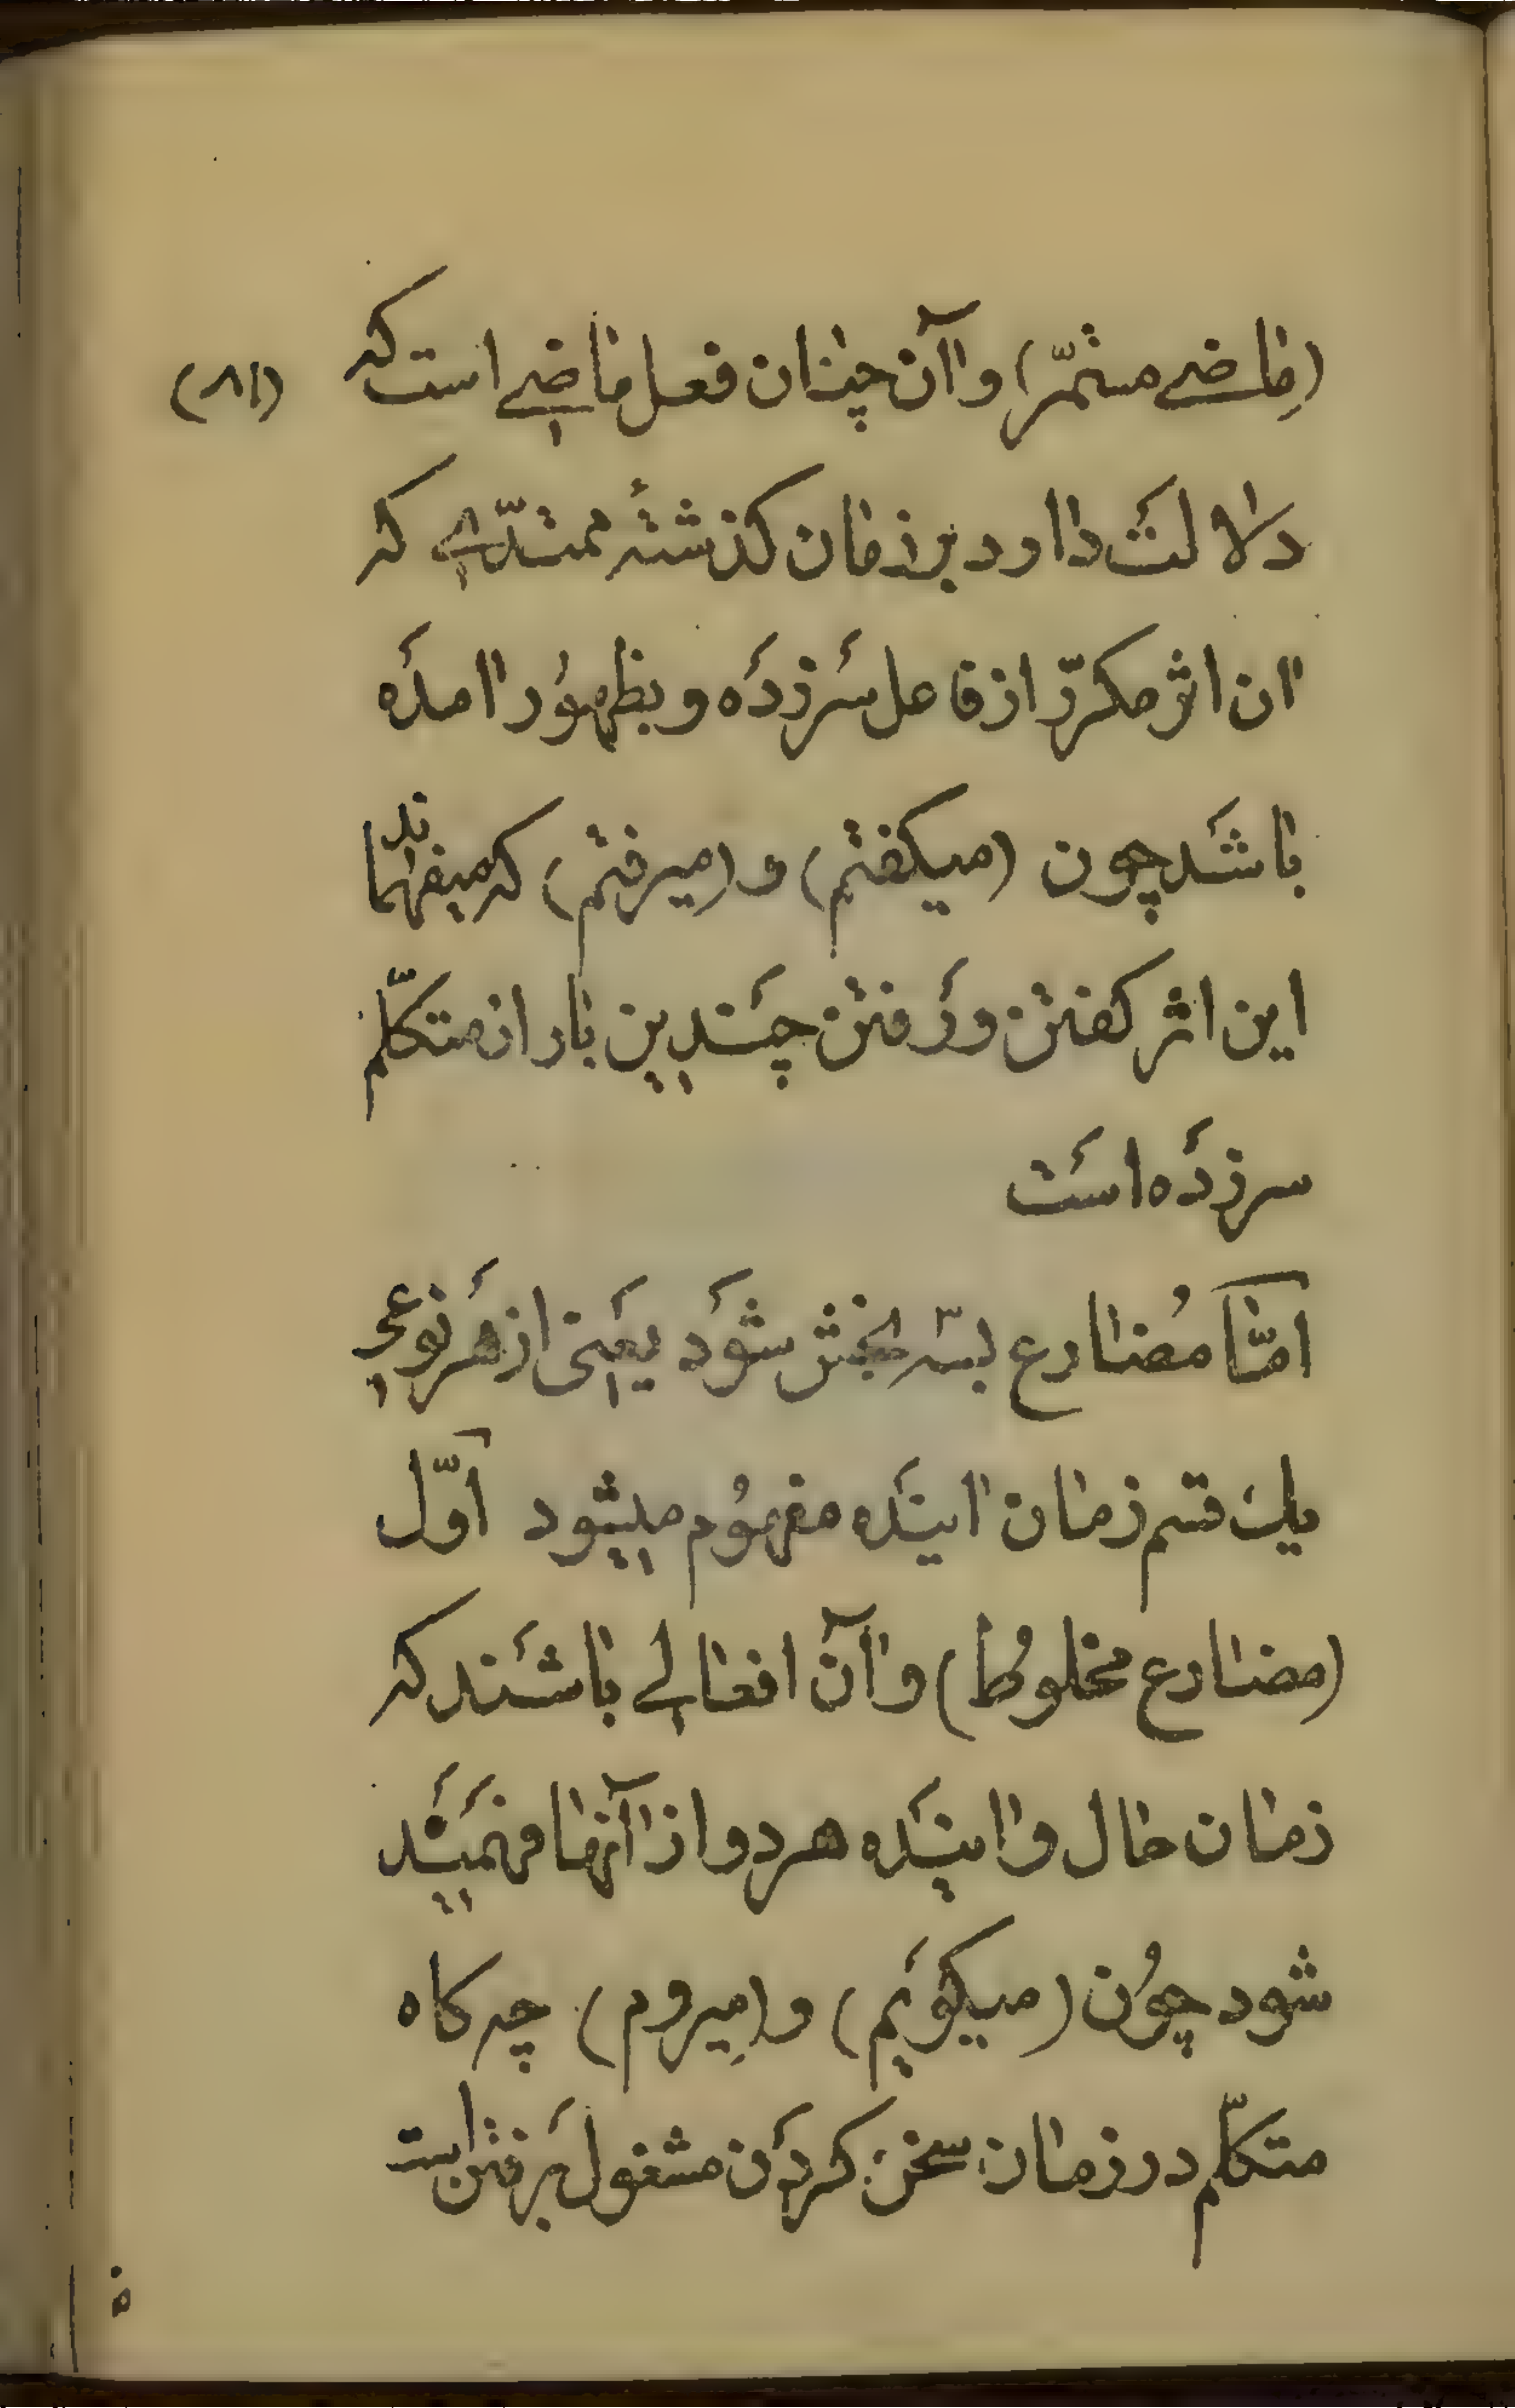 (ماضی مستمرّ) و اآن چنان فعل ماضی است که (۸۱)
دلالت دارد بر زمان کذشتهٔ ممتدّی که
اان اثر مکرّر از فاعل سَرزدَه و بظهوُر اامدَه
باشَد چون (میکفتم) و (میرفتم) که میفهماند
این اثر کفتن و رَفتن چَندین بار از متکلّم
سرزدَه اسَت
امّا مُضارع بسه بخش شوَد یعَنی از هَر نوعی
یک قسم زمان ااینَده مفهوُم میشود اوّل
(مضارع مخلوُط) و اآن افعالی باشَند که
زمان حال و ااینَده هر دو از اآنها فهمَیَد
شود چوُن (میکویَم) و (میروم) چه کاه
متکلّم در زمان سخن کردَن مشغول بَرفتن است
ه